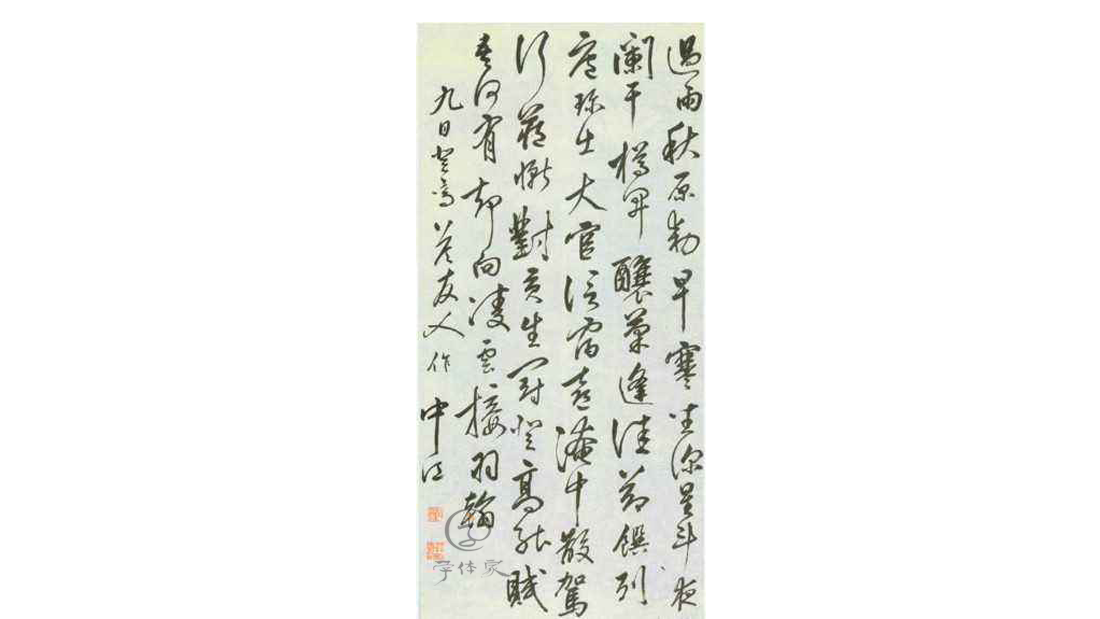 過雨秋原勒早寒坐深星斗夜
闌干樽開釀菊逢佳節饌列
庖珍出大官信宿意淹中散駕
行藏慚對貢生冠登高能賦
吾何有却向凌雲接羽翰
九日登高答友人作 中江
字体家